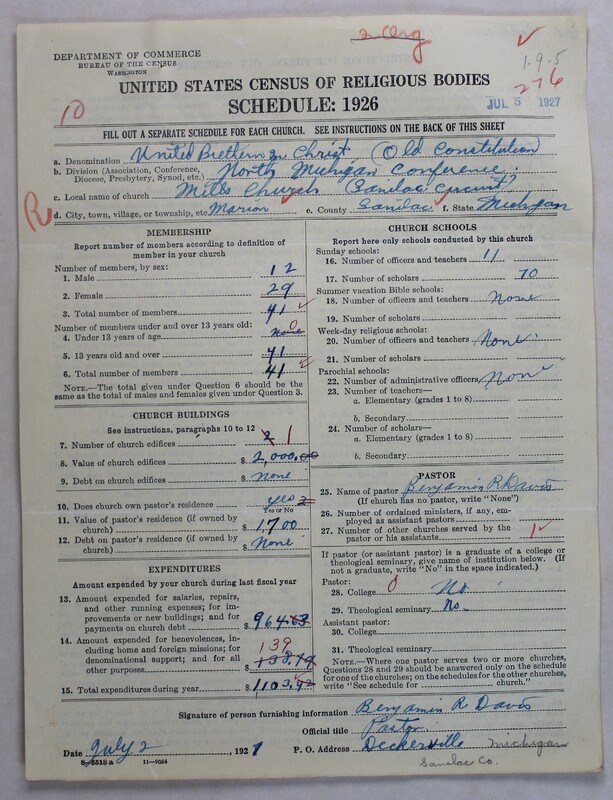 2 Org
DEPARTMENT OF COMMERCE
BUREAU OF THE CENSUS
WASHINGTON
1-9-5
276
UNITED STATES CENSUS OF RELIGIOUS BODIES
SCHEDULE: 1926
JUL 5 1927
10
FILL OUT A SEPARATE SCHEDULE FOR EACH CHURCH. SEE INSTRUCTIONS ON THE BACK OF THIS SHEET
a. Denomination United Brethern in Christ (Old Constitution)
b. Division (Association, Conference, Diocese, Presbytery, Synod, etc.) North Michigan Conference.
c. Local name of church Mills Church (Sanilac Circuit)
R
d. City, town, village, or township, etc. Marion e. County Sanilac f. State Michigan
MEMBERSHIP
Report number of members according to definition of
member in your church
Number of members, by sex:
1. Male 12
2. Female 29
3. Total number of members 41
Number of members under and over 13 years old:
4. Under 13 years of age None 0
5. 13 years old and over 41
6. Total number of members 41
NOTE.—The total given under Question 6 should be
the same as the total of males and females given under Question 3.
CHURCH BUILDINGS
See instructions, paragraphs 10 to 12
7. Number of church edifices 2 1
8. Value of church edifices $ 2,000.00
9. Debt on church edifices $ None
10. Does church own pastor's residence yes 2
Yes or No
11. Value of pastor's residence (if owned by
church) $ 1700
12. Debt on pastor's residence (if owned by
church) $ None
EXPENDITURES
Amount expended by your church during last fiscal year
13. Amount expended for salaries, repairs,
and other running expenses; for im-
provements or new buildings; and for
payments on church debt $ 964.63
14. Amount expended for benevolences, in-
cluding home and foreign missions; for
denominational support; and for all
other purposes 139
$ 138.79
15. Total expenditures during year $ 1103.42
CHURCH SCHOOLS
Report here only schools conducted by this church
Sunday schools:
16. Number of officers and teachers 11
17. Number of scholars 70
Summer vacation Bible schools:
18. Number of officers and teachers None
19. Number of scholars
Week-day religious schools:
20. Number of officers and teachers None
21. Number of scholars
Parochial schools:
22. Number of administrative officers None
23. Number of teachers—
a. Elementary (grades 1 to 8)
b. Secondary
24. Number of scholars—
a. Elementary (grades 1 to 8)
b. Secondary
PASTOR
25. Name of pastor Benjamin R Davis
(If church has no pastor, write "None")
26. Number of ordained ministers, if any, em-
ployed as assistant pastors
27. Number of other churches served by the
pastor or his assistants 1
If pastor (or assistant pastor) is a graduate of a college or
theological seminary, give name of institution below. (If
not a graduate, write "No" in the space indicated.)
Pastor:
28. College 0 No
29. Theological seminary No
Assistant pastor:
30. College
31. Theological seminary
NOTE.—Where one pastor serves two or more churches,
Questions 28 and 29 should be answered only on the schedule
for one of the churches; on the schedules for the other churches,
write "See schedule for church."
Signature of person furnishing information Benjamin R Davis
Official title Pastor
Date July 2, 1927 P. O. Address Deckerville Michigan
Sanilac Co.
8-5518 a 11-9084